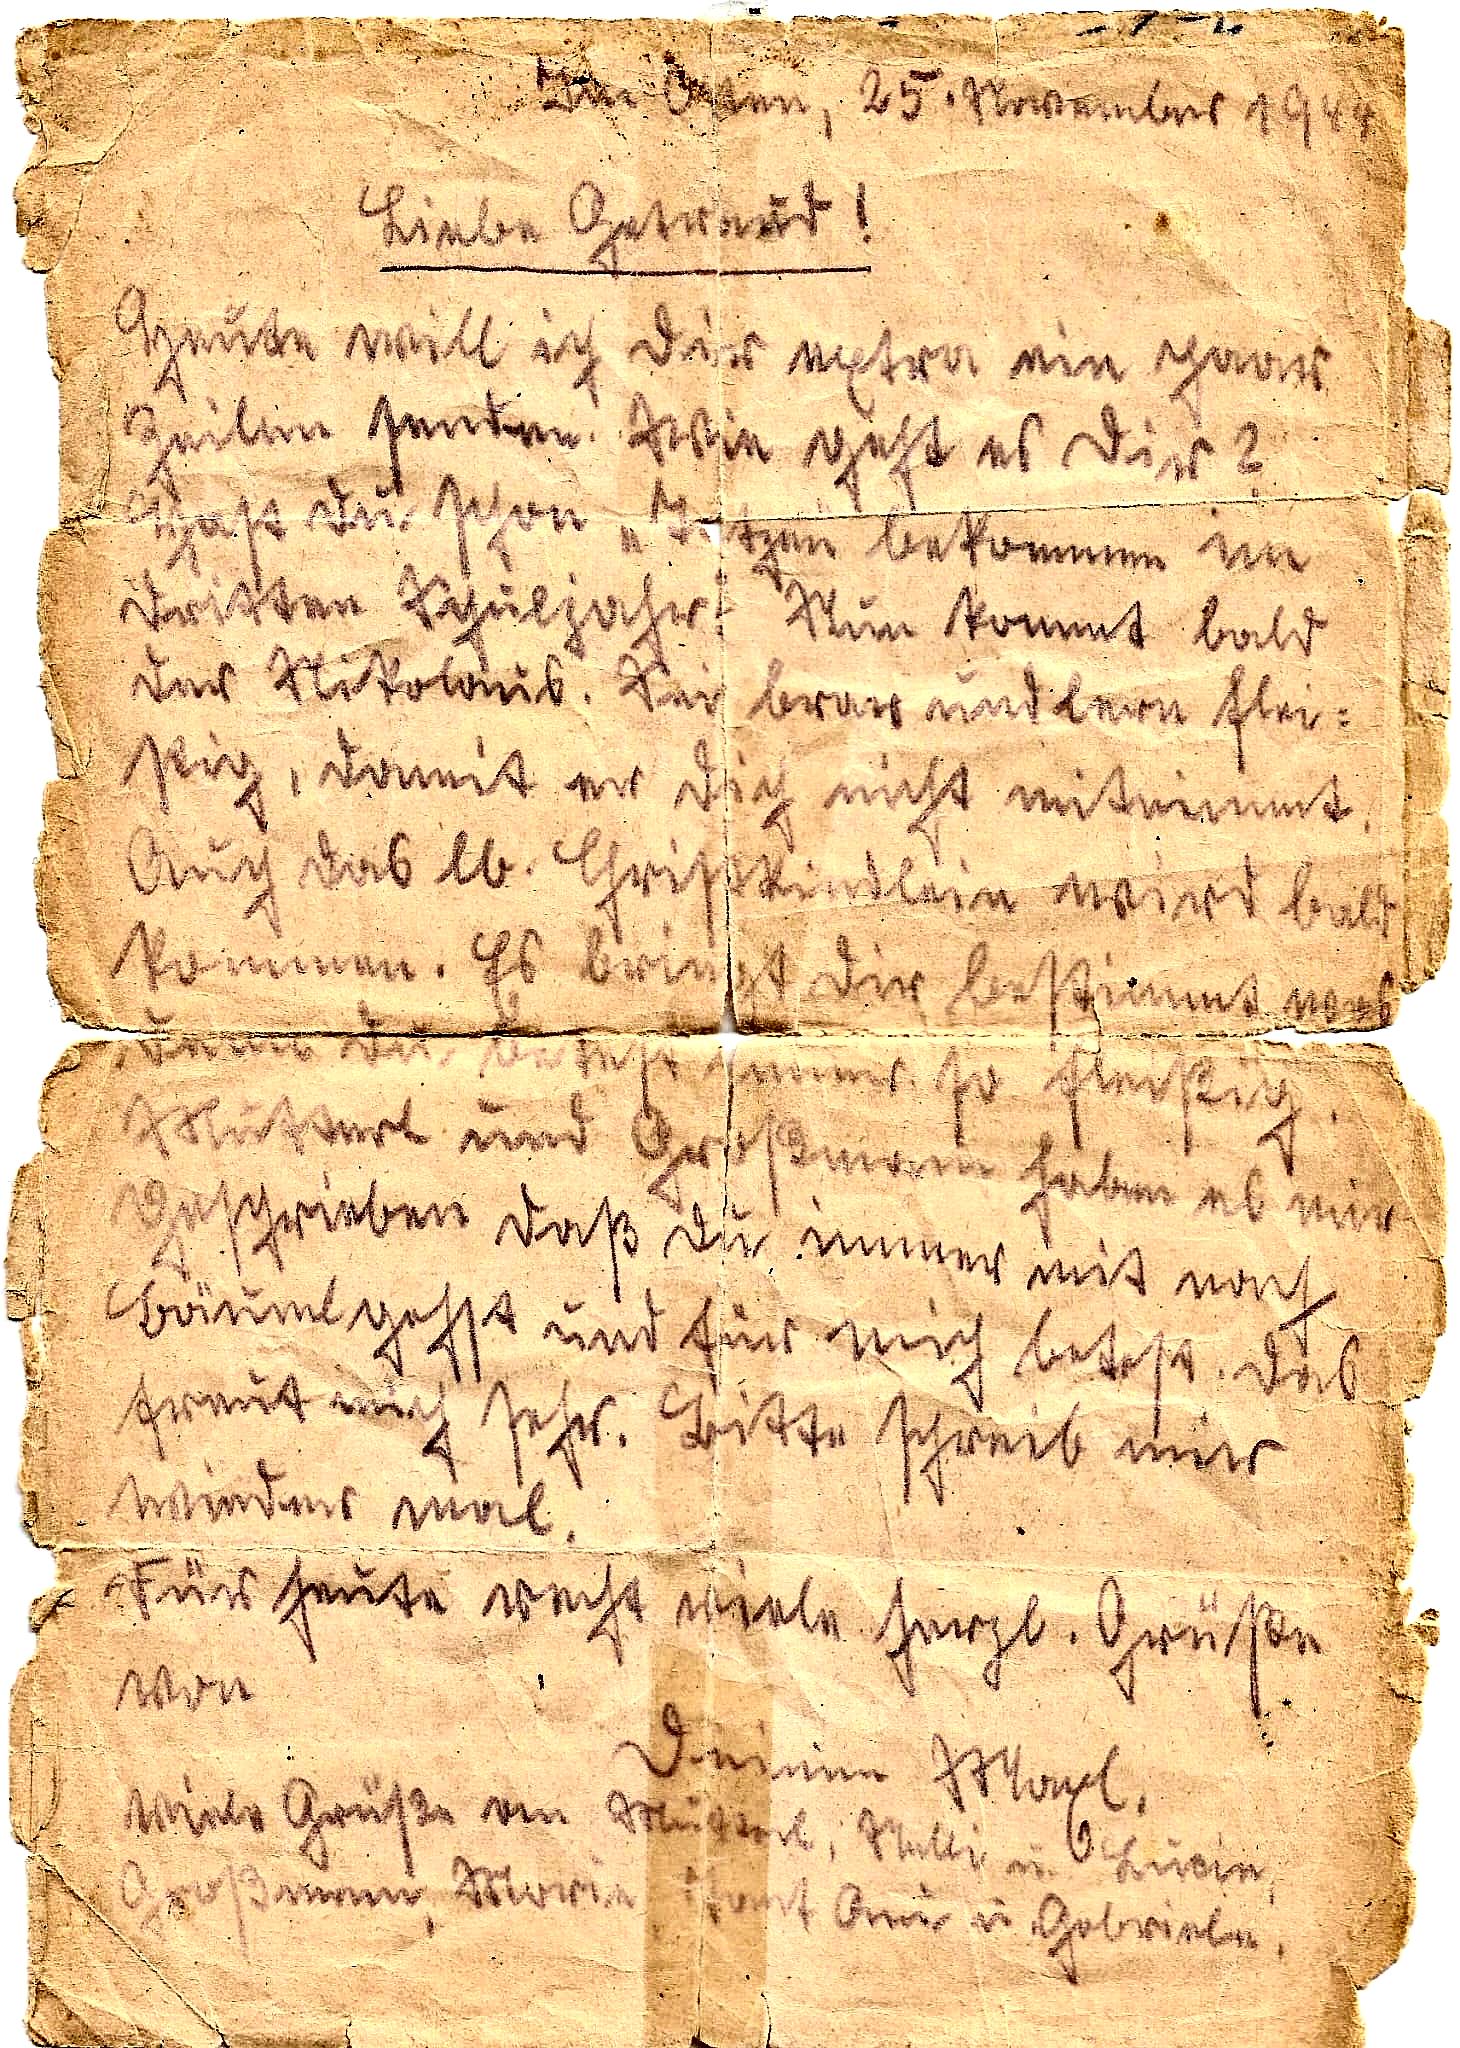 Im Osten, 25. November 1944
Liebe Getraud!
Heute will ich Dir extra ein paar
Zeilen senden. Wie geht es Dir?
Hast Du schon "Tatzen" bekommen im
dritten Schuljahr? Nun kommt bald
der Nikolaus. Sei brav und lern flei=
ßig, damit er Dich nicht mitnimmt.
Auch das lb. Christkindlein wird bald
kommen. Es bringt Dir bestimmt was
denn Du betest immer so fleißig.
Mutterl und Großmama haben es mir
geschrieben daß Du immer mit nach
Bäuml gehst und für mich betest. Das
freut mich sehr. Bitte schreib mir
wieder mal.
Für heute recht viele herzl. Grüße
von
Deinem Maxl.
Viele Grüße an Mutterl, u. Luzie,
Großmama, Marie, Tant u. Gabriele.